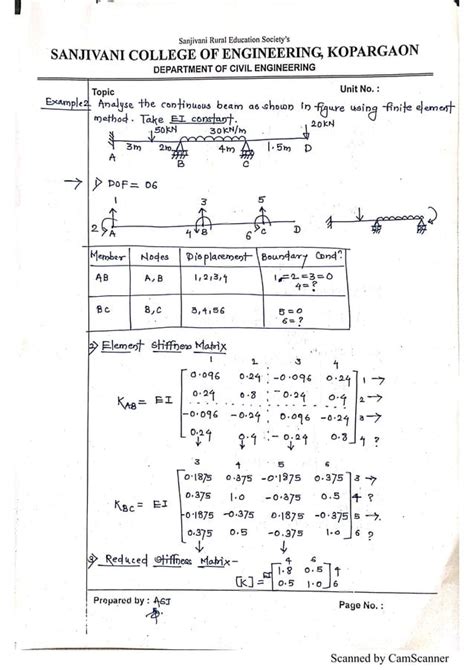 Sanjivani Rural Education Society's
SANJIVANI COLLEGE OF ENGINEERING, KOPARGAON
DEPARTMENT OF CIVIL ENGINEERING
Topic Unit No. :
Example2 Analyse the continuous beam as shown in figure using finite element
method. Take EI constant.
50KN 30KN/m 20KN
3m 2m 4m 1.5m D
A B C
→ 1) DOF = 06
1 3 5
2 A 4 B 6 C D
Member Nodes Displacement Boundary Cond?
AB A, B 1,2,3,4 1=2=3=0
4=?
BC B, C 3,4,56 5=0
6=?
2) Element Stiffness Matrix
1 2 3 4
0.096 0.24 -0.096 0.24 1 →
0.24 0.8 -0.24 0.4 2 →
KAB = EI
-0.096 -0.24 0.096 -0.24 3 →
0.24 0.4 -0.24 0.8 4 ?
3 4 5 6
0.1875 0.375 -0.1875 0.375 3 →
0.375 1.0 -0.375 0.5 4 ?
KBC = EI
-0.1875 -0.375 0.1875 -0.375 5 →
0.375 0.5 -0.375 1.0 6 ?
3) Reduced Stiffness Matrix-
4 6
[K] = EI 1.8 0.5 4
0.5 1.0 6
Prepared by : AGJ Page No. :
Scanned by CamScanner